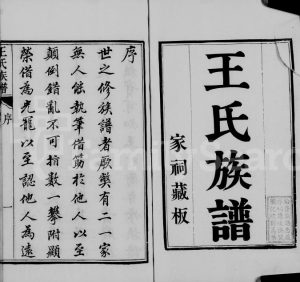 王氏族譜
家祠藏板
序
世之修族譜者厥獘有二一家
無人能執筆借筋於他人以至
顛倒錯亂不可指數一攀附顯
榮借為光龍以至認他人為遠
王氏族譜
序